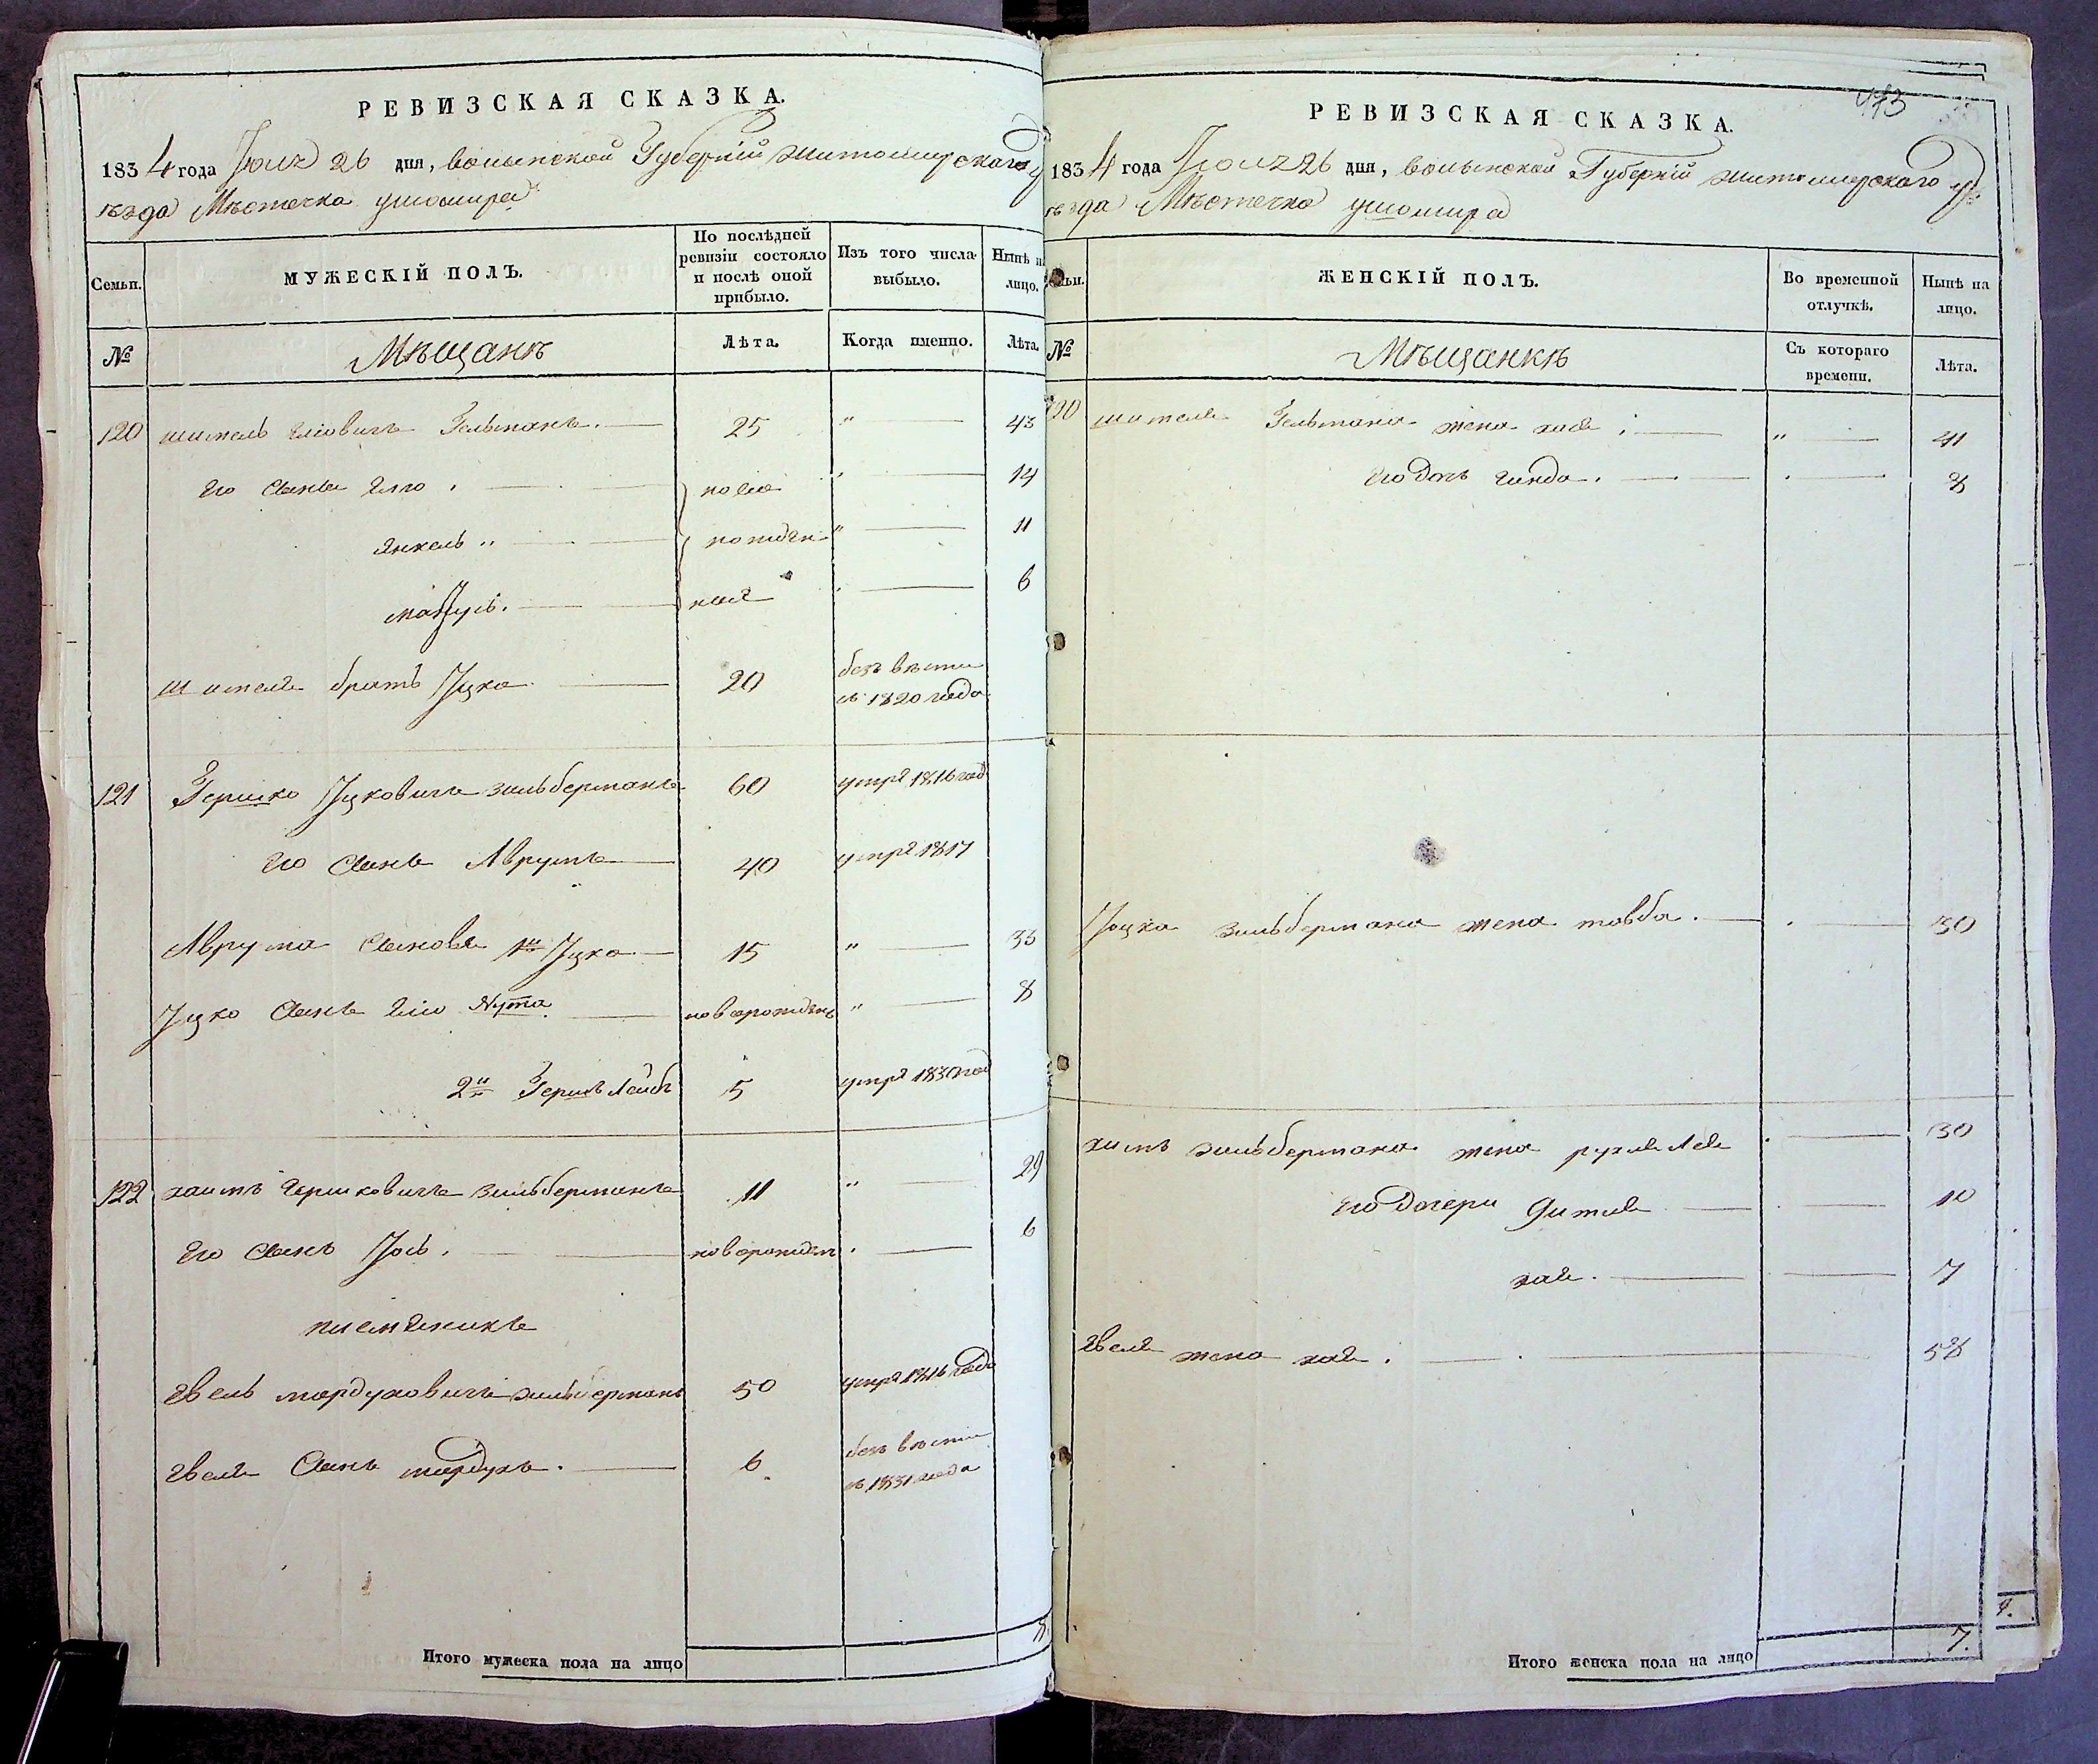 РЕВИЗСКАЯ СКАЗКА.
1834 года 26 дня, волынской Губерніи житомирского у
ѣзда Мѣстечка ушомира
Семьи.
МУЖЕСКІЙ ПОЛЪ.
По послѣдней ревизіи состояло и послѣ оной прибыло.
Изъ того числа выбыло.
Нынѣ н лицо.
№
Мѣщанѣ
Лѣта.
Когда именно.
Лѣта.
120 шмель Зельманъ. 25 " 43
его сынъ 14
янкель " " 11
6
шмеля братъ Ицко 20 безъ вѣсти
съ 1820 года
121 Гершко Ицковичъ зильберманъ 60 умре 1816 год
его сынъ Аврумъ 40 умре 1817
Аврума сыновья 1й Ицко 15 " 33
Ицко сынъ Нута новорожденъ " 8
2й Гершъ Лейбъ 5 умре 1830 год
122 хаимъ гершковичъ зильберманъ 11 " 29
его сынъ Іось. новорожден 6
племяникъ
мордуховичъ зильберманъ 50 умре 1816 года
сынъ мордухъ. 6 безъ вѣсти
съ 1831 года
Итого мужеска пола на лицо
РЕВИЗСКАЯ СКАЗКА.
1834 года 26 дня, волынской Губерніи житомирского у
ѣзда Мѣстечка ушомира
ЖЕНСКІЙ ПОЛЪ.
Во временной отлучкѣ.
Нынѣ на лицо.
№
Мѣщанкѣ
Съ котораго времени.
Лѣта.
120 шмеля Зельмана жена хая " 41
его дочь гинда. 8
Ицка зильбермана жена товба. 30
зильбермана жена рухля лея 30
его дочери 10
хая. 7
жена хая. 58
Итого женска пола на лицо 7.